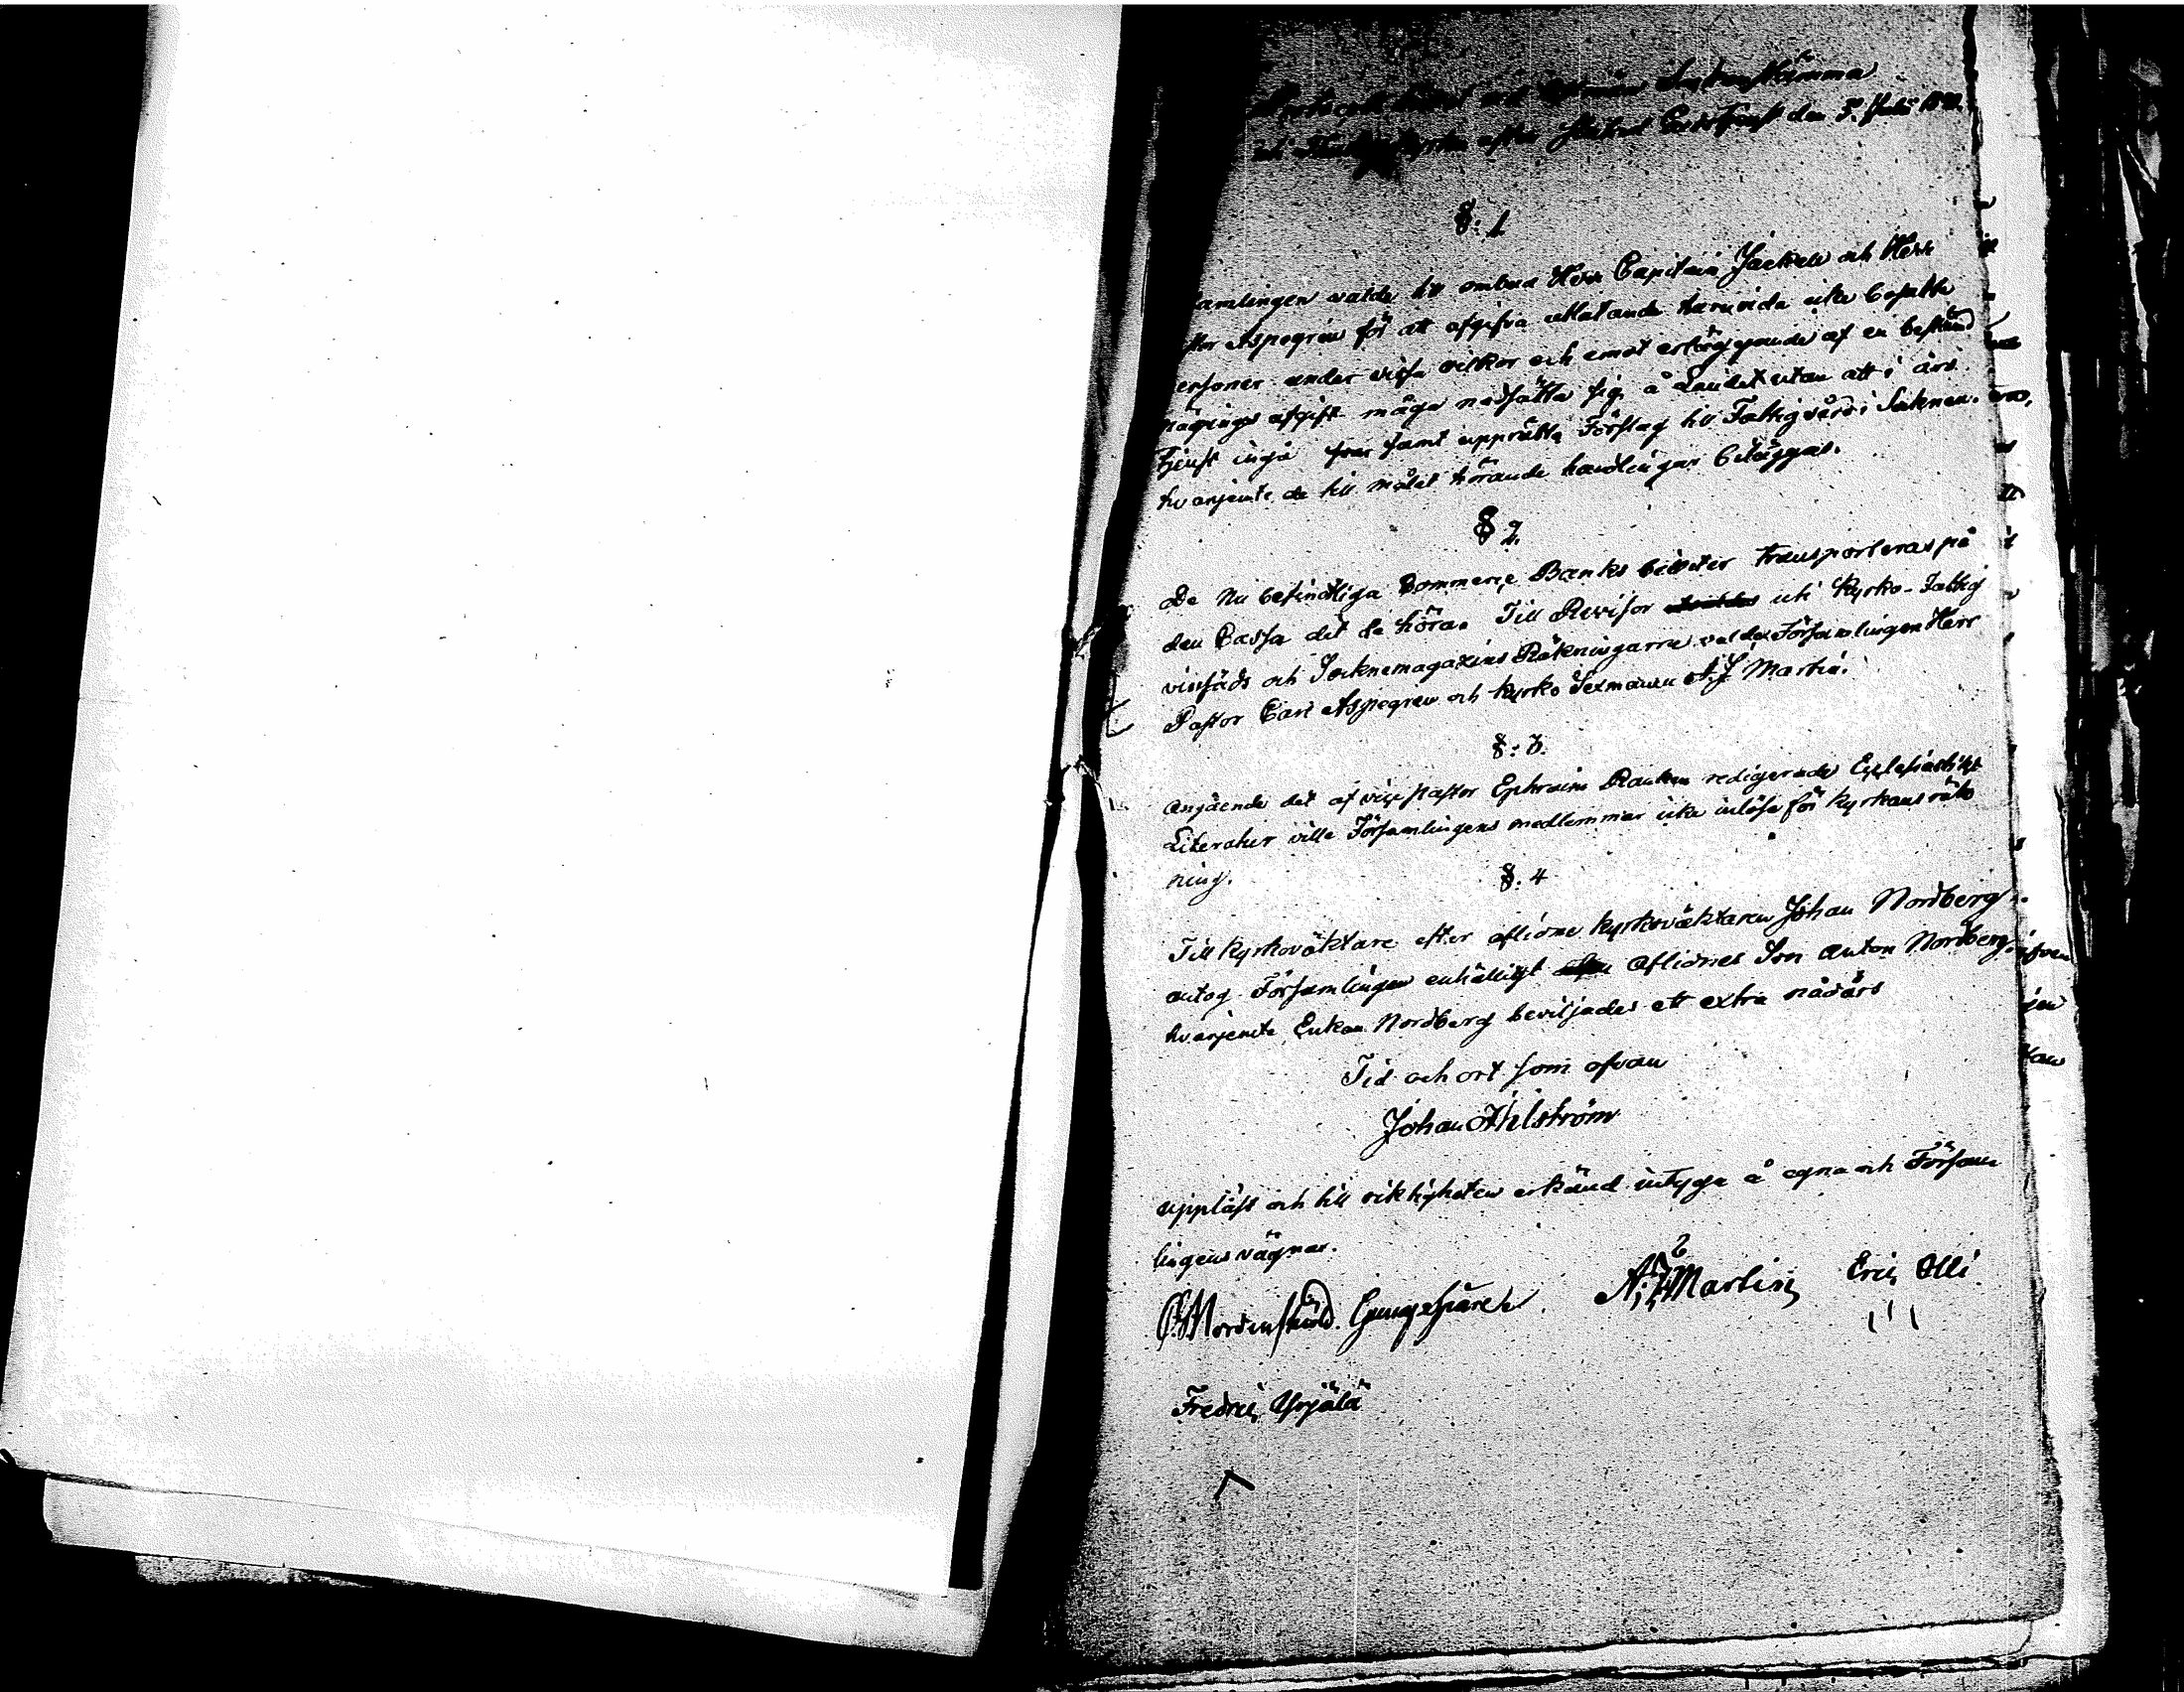 Sockenstämma
efter slutad Gudstjenst den 5. Juli
§: 1
amlingen valde till ombud Herr Capitain Jack och Herr
stor Aspegren för att afgifva utlåtande huruvida icke besutta
ersoner under vissa vilkor och emot erläggande af en bestämd
nägings afgift måga nedsätta sig å Landet utan att i års
tjenst ingå samt upprätta Förslag till Fattigvård i Soknen.
hvarjemte de till målet hörande handlingar biläggas.
§ 2.
De Nu befindtliga Commerce Banks billeter transporteras på
den Cassa dit de höra. Till Revisor uti Kyrko-Fattig
vissjäds och Socknemagazins Räkningarne valdes Församlingen Herr
Pastor Carl Aspegren och Kyrko Sexmannen A: J Martin.
§: 3.
Angående det af vice pastor Ephraim Rauken redigerade Ecclesiastikt
Literatur ville Församlingens medlemmar icke inlösa för kyrkans räk
ning.
§: 4
Till Kyrkoväktare efter aflidne kyrkoväktaren Johan Nordberg
antog Församlingen enhälligt Aflidnes Son Anton Nordberg,
hvarjemte Enkan Nordberg beviljades ett extra nådårs
Tid och ort som ofvan
Johan Ahlström
uppläst och till riktigheten erkänd intyga å egna och Försam
lingens vägnar.
O. Nordenskiöld. A: J: Martin Eric Olli
Fredric Yrjälä